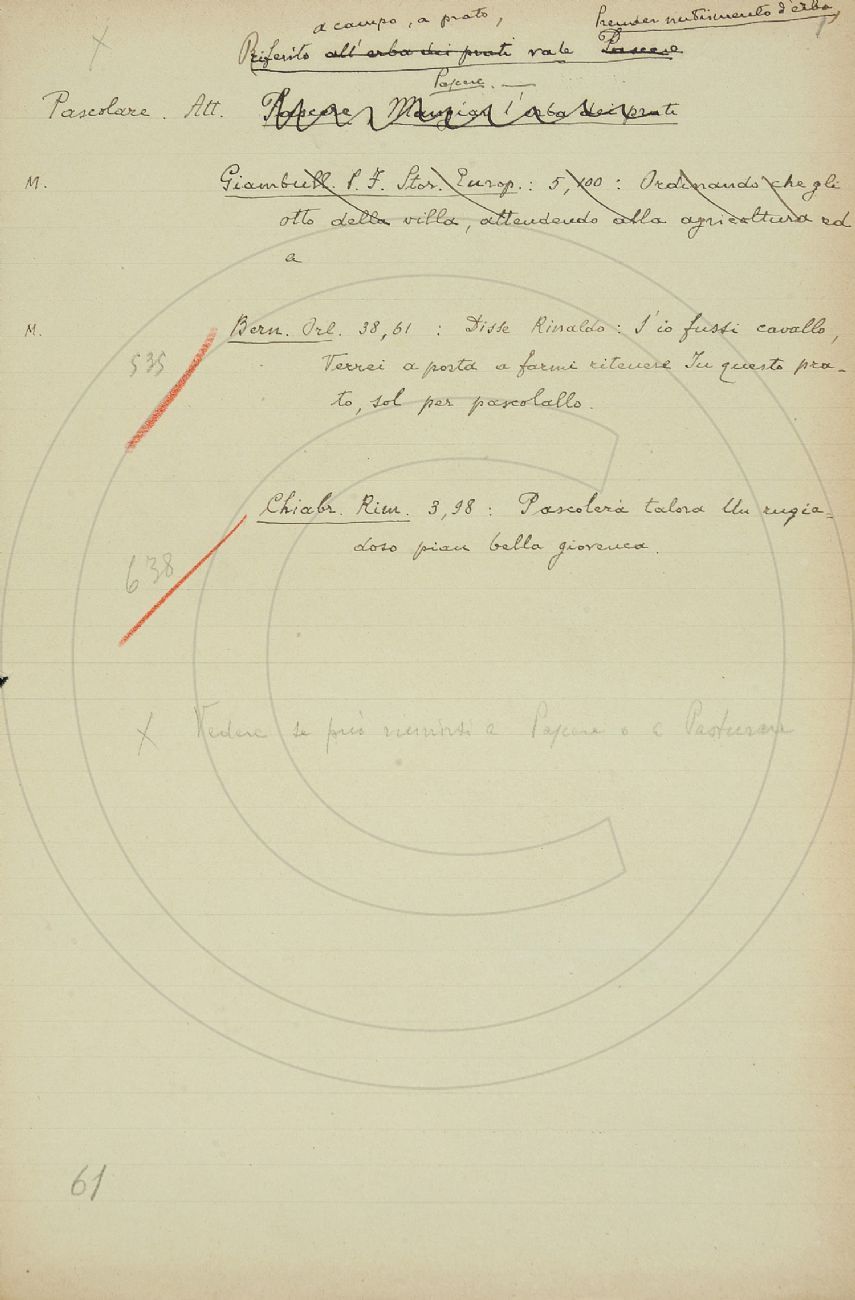 a campo, a prato, Prender nutrimento d'erba,
× Riferito all'erba dei prati vale Pascere
Pascere.
Pascolare. Att. Pascere, Mangiar l'erba dei prati
M. Giambull. P. F. Stor. Europ.: 5, 100: Ordinando che gli
otto della villa, attendendo alla agricoltura ed
a
M. Bern. Orl. 38, 61: Disse Rinaldo: S'io fussi cavallo,
535 Verrei a posta a farmi ritenere In questo pra-
to, sol per pascolallo.
Chiabr. Rim. 3, 98: Pascolerà talora Un rugia=
638 doso pian bella giovenca.
× Vedere se può riunirsi a Pascere o a Pasturare
61